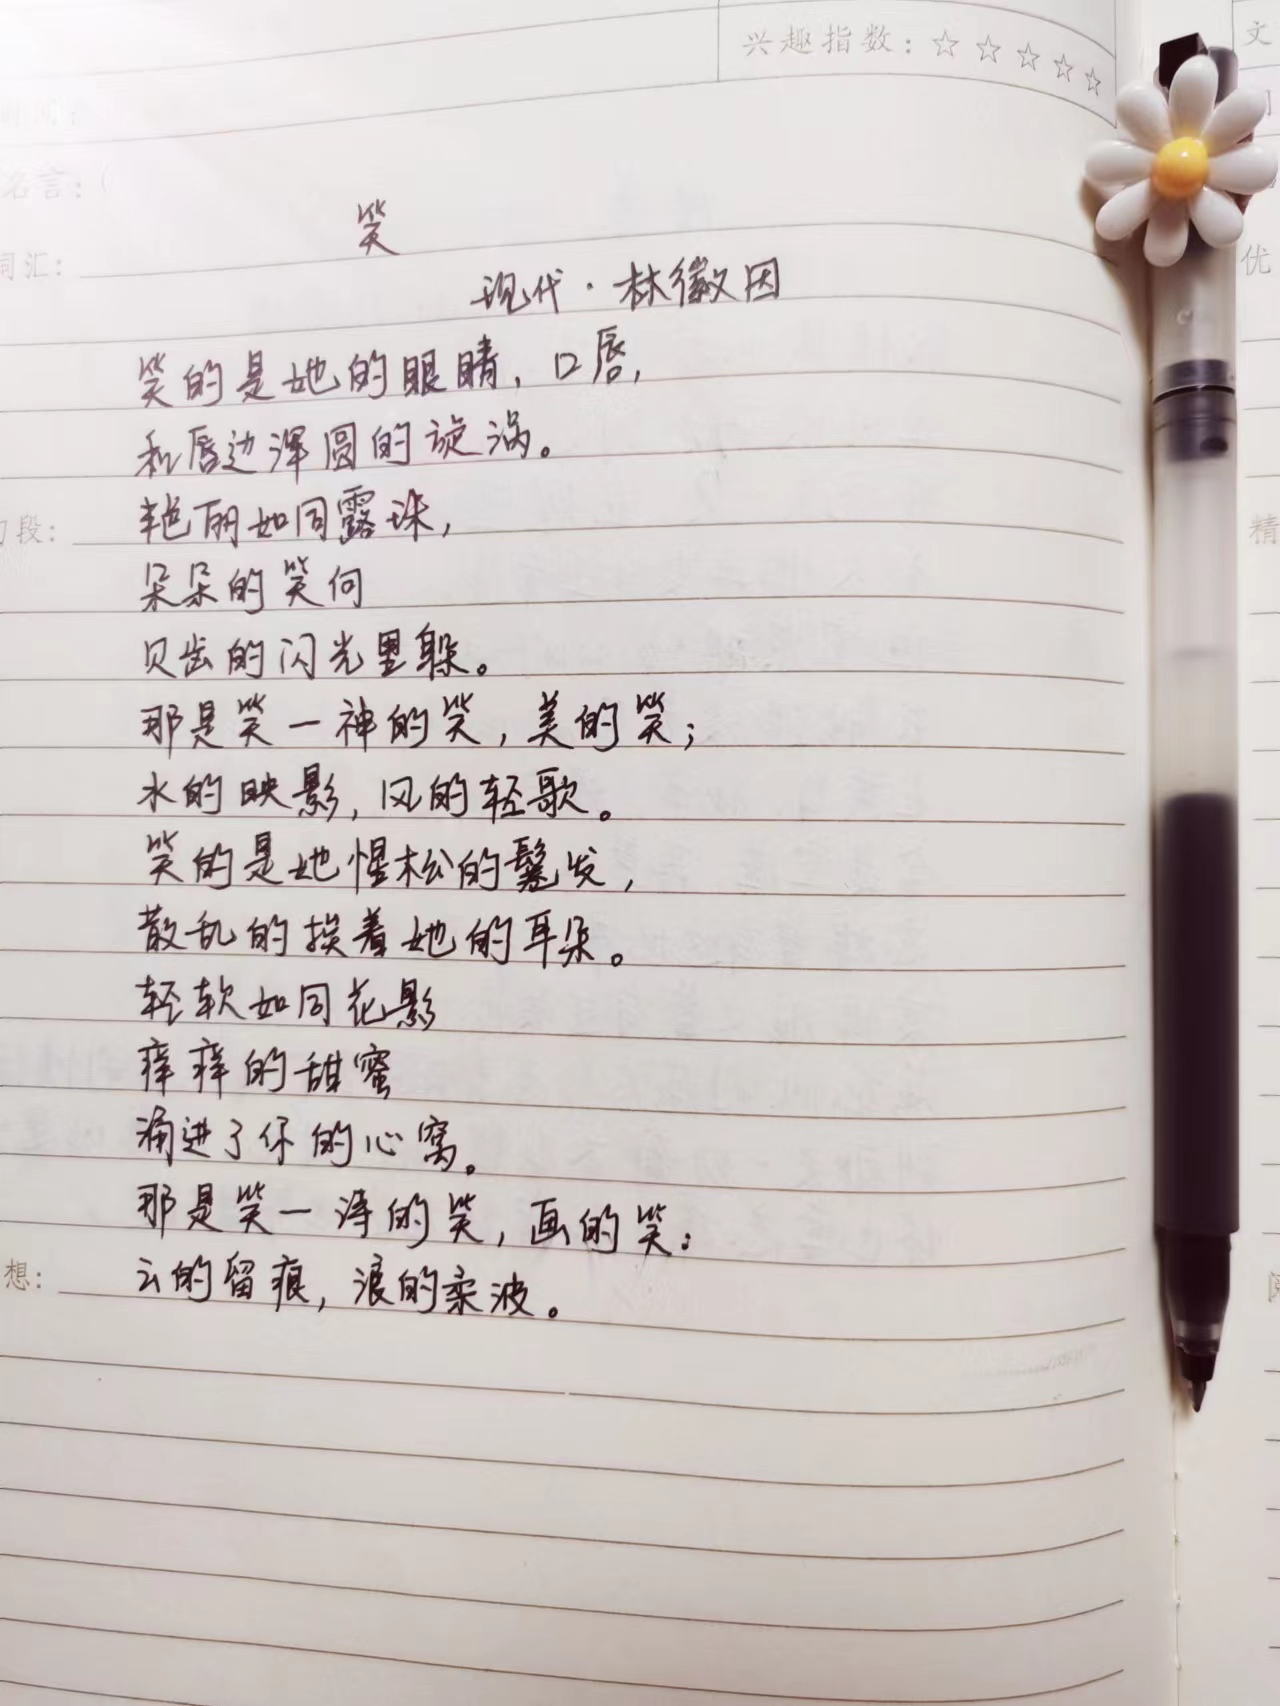 兴趣指数：☆☆☆☆☆
名言：（
词汇：
笑
现代·林徽因
笑的是她的眼睛，口唇，
和唇边浑圆的旋涡。
艳丽如同露珠，
朵朵的笑向
贝齿的闪光里躲。
那是笑一神的笑，美的笑；
水的映影，风的轻歌。
笑的是她惺松的鬈发，
散乱的挨着她的耳朵。
轻软如同花影
痒痒的甜蜜
涌进了你的心窝。
那是笑一诗的笑，画的笑：
云的留痕，浪的柔波。
段：
想：
文
优
精